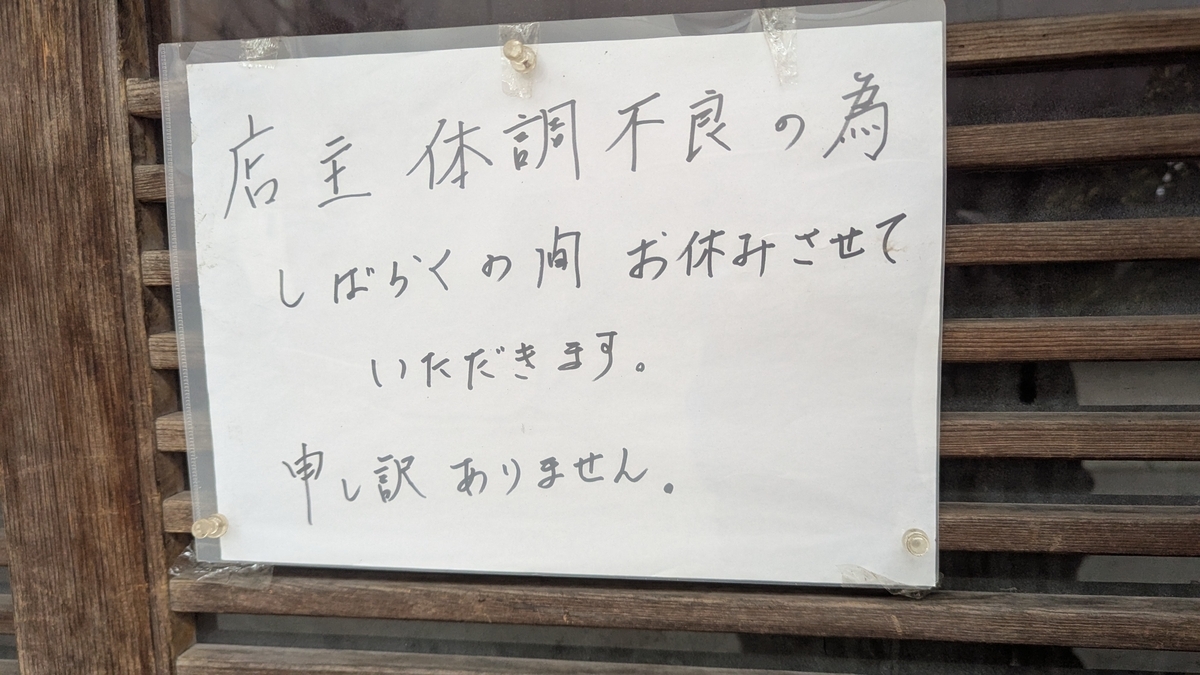 店主 体調不良の為
しばらくの間 お休みさせて
いただきます。
申し訳ありません。